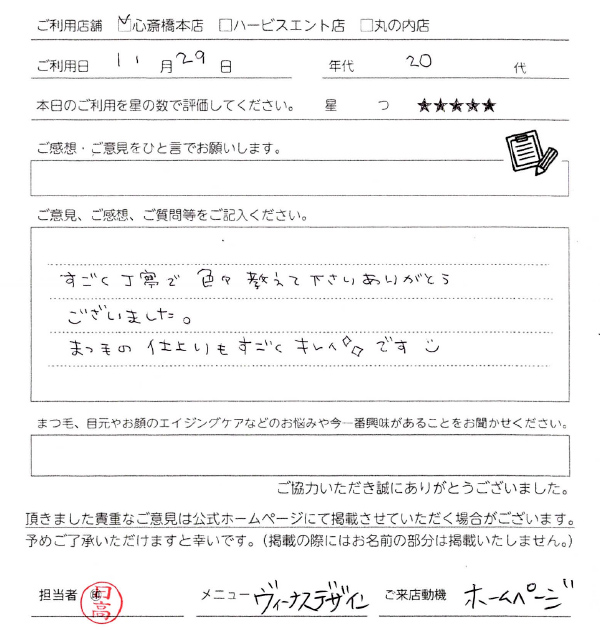 ご利用店舗 ☑心斎橋本店 □ハービスエント店 □丸の内店
ご利用日 11月29日 年代 20代
本日のご利用を星の数で評価してください。 星 つ ★★★★★
ご感想・ご意見をひと言でお願いします。
ご意見、ご感想、ご質問等をご記入ください。
すごく丁寧で 色々 教えて下さいありがとう
ございました。
まつ毛の 仕上りも すごく キレイ です
まつ毛、目元やお顔のエイジングケアなどのお悩みや今一番興味があることをお聞かせください。
ご協力いただき誠にありがとうございました。
頂きました貴重なご意見は公式ホームページにて掲載させていただく場合がございます。
予めご了承いただけますと幸いです。（掲載の際にはお名前の部分は掲載いたしません。）
担当者 日高 メニュー ヴィーナスデザイン ご来店動機 ホームページ